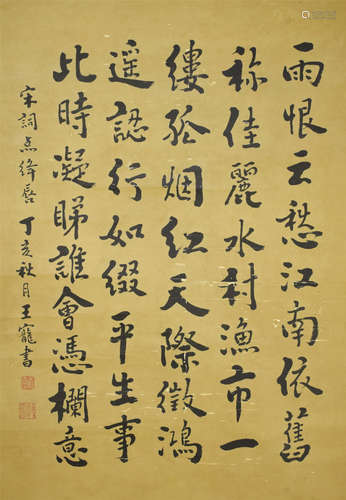 雨恨云愁江南依舊
称佳麗水村漁市一
縷孤烟紅天際徵鴻
遥認行如綴平生事
此時凝睇誰會憑欄意
宋詞点絳唇丁亥秋月王寵書